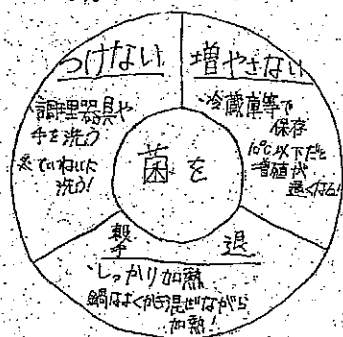 つけない
・調理器具や
手を洗う
※ていねいに
洗う!
増やさない
・冷蔵庫等で
保存
10℃以下だと
増殖が
遅くなる!
菌を
撃退
・しっかり加熱
鍋はよくかき混ぜながら
加熱!